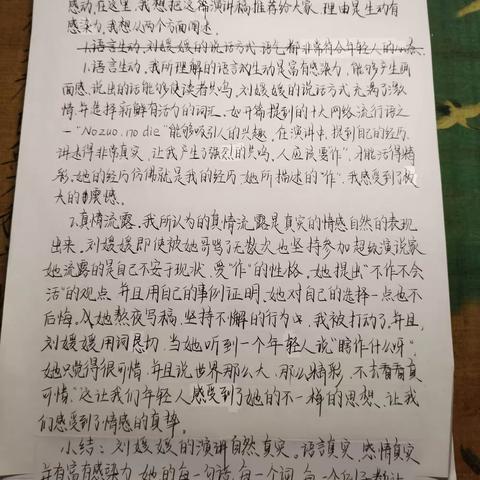 感动,在这里,我想把这篇演讲稿推荐给大家,理由是生动有
感染力,我想从两个方面阐述。
1.语言生动,刘媛媛的说话方式 语气都非常符合年轻人的
1.语言生动,我所理解的语言的生动是富有感染力,能够产生画
面感,说出的话能够使读者共鸣,刘媛媛的说话方式充满了激
情,并选择新鲜有活力的词汇。如开篇提到的十大网络流行语之
一"No zuo, no die"能够吸引人的兴趣,在演讲中,提到自己的经历,
讲述得非常真实,让我产生了强烈的共鸣,人应该要"作",才能活得精
彩,她的经历仿佛就是我的经历,她所描述的"作",我感受到了极
大的震憾。
2.真情流露,我所认为的真情流露是真实的情感自然的表现
出来。刘媛媛即使被她哥骂了无数次也坚持参加超级演说家
她流露的是自己不安于现状,爱"作"的性格,她提出"不作不会
活"的观点,并且用自己的事例证明,她对自己的选择一点也不
后悔。从她熬夜写稿,坚持不懈的行为中,我被打动了,并且,
刘媛媛用词恳切,当她听到一个年轻人说"瞎作什么呀",
她只觉得很可惜,并且说"世界那么大,那么精彩,不去看看真
可惜。"这让我们年轻人感受到了她的不一样的思想,让我
们感受到了情感的真挚。
小结:刘媛媛的演讲自然真实。语言真实,感情真实
并有富有感染力,她的每一句话,每一个词,每一个例子都让